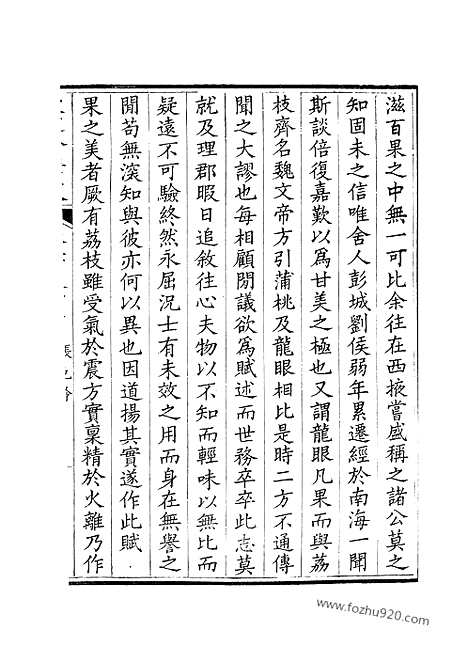 滋百果之中無一可比余往在西掖嘗盛稱之諸公莫之
知固未之信唯舍人彭城劉侯弱年累遷經於南海一聞
斯談倍復嘉歎以為甘美之極也又謂龍眼凡果而與荔
枝齊名魏文帝方引蒲桃及龍眼相比是時二方不通傳
聞之大謬也每相顧閒議欲為賦述而世務卒卒此志莫
就及理郡暇日追敘往心夫物以不知而輕味以無比而
疑遠不可驗終然永屈況士有未效之用而身在無譽之
閒苟無深知與彼亦何以異也因道揚其實遂作此賦
果之美者厥有荔枝雖受氣於震方實稟精於火離乃作
www.fozhu920.com